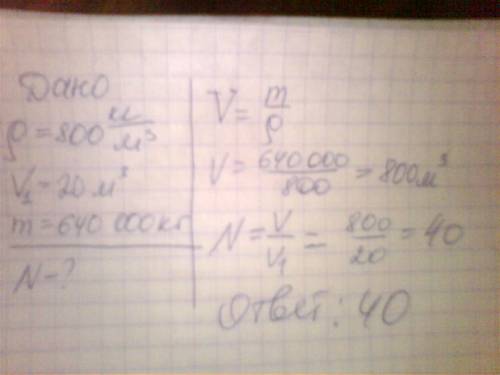 Дано
ρ = 800 кг/м³
V₁ = 20 м³
m = 640 000 кг
N - ?
V = m/ρ
V = 640.000/800 = 800 м³
N = V/V₁ = 800/20 = 40
Ответ: 40